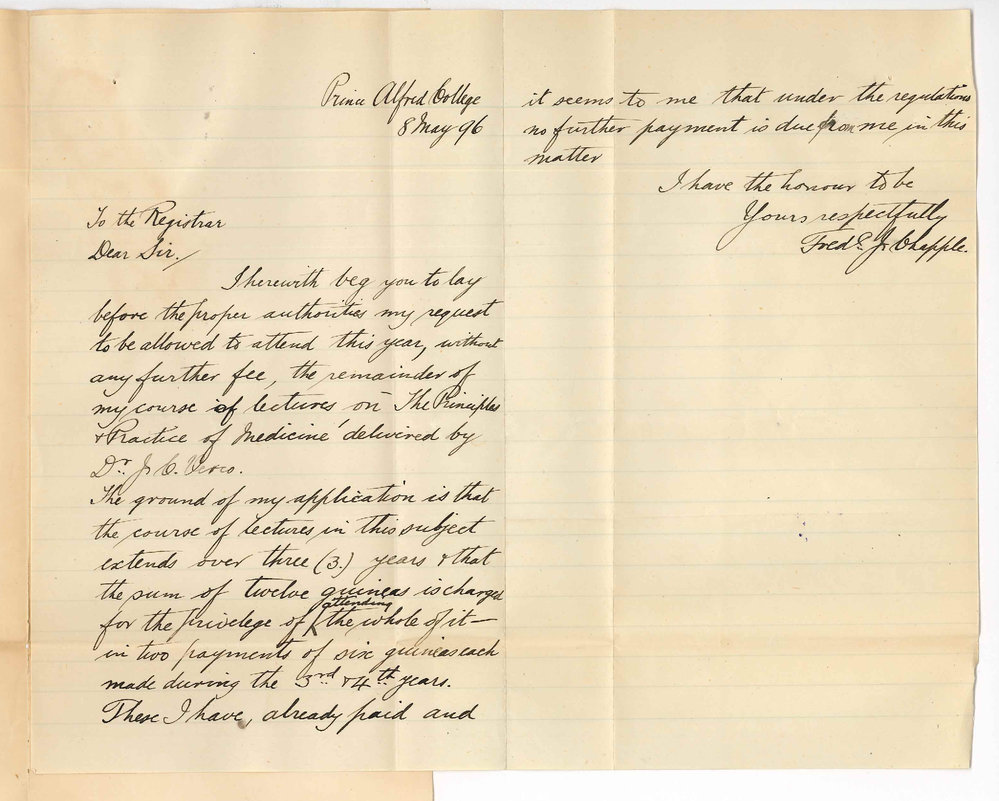 Prince Alfred College
8 May 96
To the Registrar
Dear Sir./
I herewith beg you to lay
before the proper authorities my request
to be allowed to attend this year, without
any further fee, the remainder of
my course of lectures on 'The Principles
& Practice of Medicine' delivered by
Dr. J. C. Verco.
The ground of my application is that
the course of lectures in this subject
extends over three (3.) years & that
the sum of twelve guineas is charged
attending
for the privelege of the whole of it—
in two payments of six guineas each
made during the 3rd & 4th years.
These I have, already paid and
it seems to me that under the regulations
no further payment is due from me in this
matter
I have the honour to be
Yours respectfully
Fred. J. Chapple.